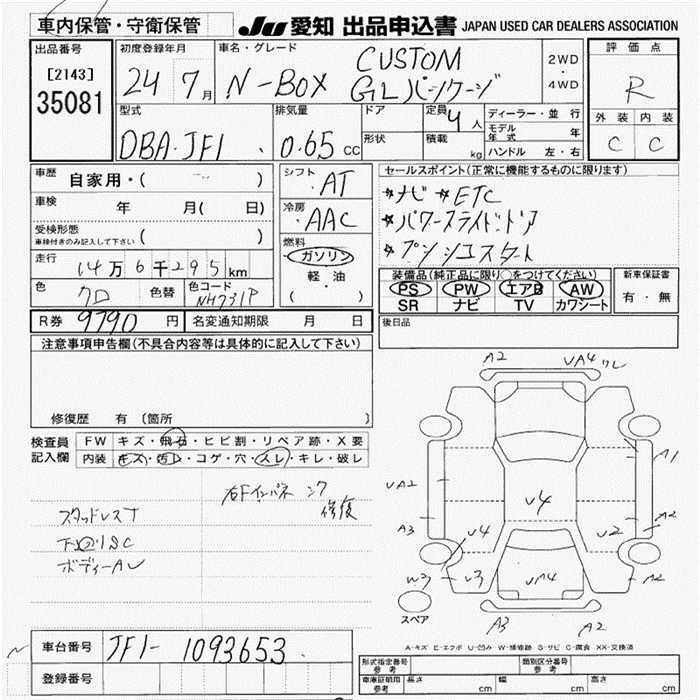 車内保管・守衛保管
JU 愛知 出品申込書 JAPAN USED CAR DEALERS ASSOCIATION
出品番号
[2143]
35081
初度登録年月
24 7月
車名・グレード
N-BOX
CUSTOM
GLパッケージ
2WD
・
4WD
評価点
R
外装 内装
C C
型式
DBA-JF1
排気量
0.65 CC
ドア
形状
定員 4 人
積載 kg
ディーラー・並行
モデル年式 年
ハンドル 左・右
車歴
自家用・( )
車検 年 月( 日)
受検形態
車検付きのみ記入して下さい ( )
走行
14万6千295km
色
クロ
色替
色コード
NH731P
シフト
・AT
冷房
・AAC
燃料
ガソリン
軽・油
( )
セールスポイント(正常に機能するものに限ります)
*ナビ *ETC
*パワースライドドア
*プッシュスタート
装備品(純正品に限り○をつけてください)
PS PW エアB AW
SR ナビ TV カワシート
新車保証書
有・無
R券 9790 円
名変通知期限 月 日
後日品
注意事項申告欄(不具合内容等は具体的に記入して下さい)
修復歴 有 (箇所
検査員
記入欄
FW キズ・飛石・ヒビ割・リペア跡・X要
内装 キズ・汚レ・コゲ・穴・スレ・キレ・破レ
右Fインパネ
修復
スタッドレスT
下回りSC
ボディーAU
A2 UA4 ワレ
A1
UA2
A3
U4
U4
U2
A2
W3 U3 UA4 A2
スペア
A3 A2
A-キズ E-エクボ U-凹み W-補修跡 S-サビ C-腐食 XX-交換済
車台番号 JF1-1093653
登録番号
形式指定番号
参考
類別区分番号
参考
車庫証明用
参考
長さ cm 幅 cm 高さ cm